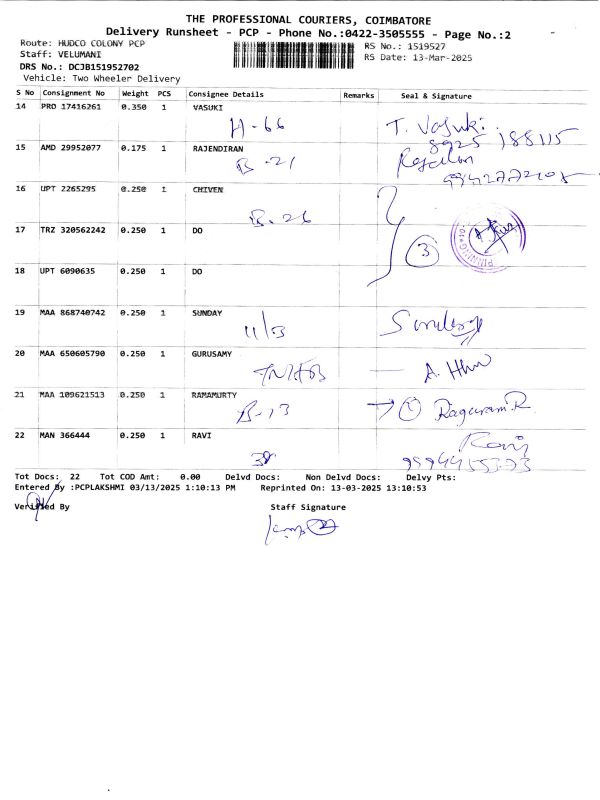 THE PROFESSIONAL COURIERS, COIMBATORE
Delivery Runsheet - PCP - Phone No.:0422-3505555 - Page No.:2
Route: HUDCO COLONY PCP RS No.: 1519527
Staff: VELUMANI RS Date: 13-Mar-2025
DRS No.: DCJB151952702
Vehicle: Two Wheeler Delivery
S No Consignment No Weight PCS Consignee Details Remarks Seal & Signature
14 PRO 17416261 0.350 1 VASUKI
H-66 T. Vasuki
15 AMD 29952077 0.175 1 RAJENDIRAN
B-21
16 UPT 2265295 0.250 1 CHIVEN
B-26
17 TRZ 320562242 0.250 1 DO
3
18 UPT 6090635 0.250 1 DO
19 MAA 868740742 0.250 1 SUNDAY
11/53
20 MAA 650605790 0.250 1 GURUSAMY
TNHB
21 MAA 109621513 0.250 1 RAMAMURTY
B-13 Raguram.R
22 MAN 366444 0.250 1 RAVI
38 Ravi
Tot Docs: 22 Tot COD Amt: 0.00 Delvd Docs: Non Delvd Docs: Delvy Pts:
Entered By :PCPLAKSHMI 03/13/2025 1:10:13 PM Reprinted On: 13-03-2025 13:10:53
Verified By Staff Signature